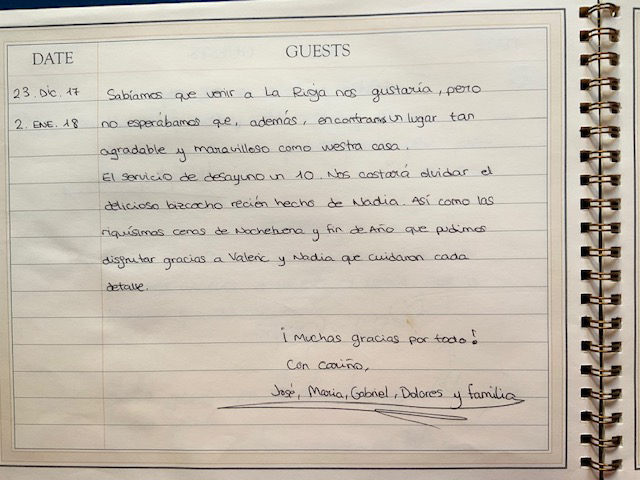 DATE GUESTS
23. Dic. 17 Sabíamos que venir a La Rioja nos gustaría, pero
2. ENE. 18 no esperábamos que, además, encontrams un lugar tan
agradable y maravilloso como vuestra casa.
El servicio de desayuno un 10. Nos costará olvidar el
delicioso bizcocho recién hecho de Nadia. Así como las
riquísimas cenas de Nochebuena y fin de Año que pudimos
disfrutar gracias a Valeric y Nadia que cuidaron cada
detalle.
¡Muchas gracias por todo!
Con cariño,
José, Maria, Gabriel, Dolores y familia